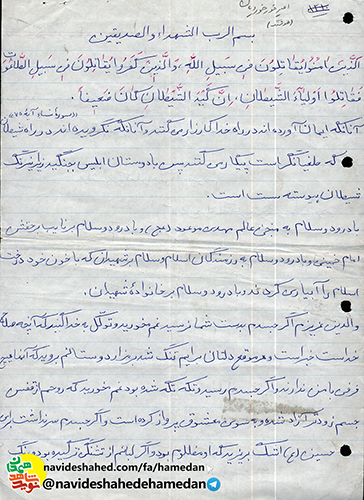 بسم الرب الشهداء و الصدیقین
الذین امنوا یقاتلون فی سبیل الله والذین کفروا یقاتلون فی سبیل الطاغوت
فقاتلوا اولیاء الشیطان، ان کید الشیطان کان ضعیفاً
آنانکه ایمان آورده اند در راه خدا کارزار می کنند و آنانکه نگرویده اند در راه شیطان
که طغیانگر است پیکار می کنند پس با دوستان ابلیس بجنگید زیرا نیرنگ
شیطان پیوسته سست است.
با درود و سلام به منجی عالم مهدی موعود (عج) و با درود و سلام بر نایب برحقش
امام خمینی و با درود و سلام به رزمندگان اسلام و سلام بر شهیدانی که با خون خود درخت
اسلام را آبیاری کردند و با درود و سلام بر خانواده شهیدان.
والدین عزیزم اگر جسدم بدست شما نرسید غم مخورید و توکل به خدا کنید که آنچه صلاح
خداست خیر است و هر موقع دلتان برایم تنگ شد بر مزار دوستانم بروید که آنها هیچ
فرقی با من ندارند و اگر جسدم رسید و تکه تکه شده بود غم مخورید که روحم از قفس
جسم زودتر آزاد شده و بسوی معشوق پرواز کرده است و اگر جسدم سر نداشت برای
حسین (ع) اشک بریزید که او مظلوم بود و اگر لبانم از تشنگی ترکیده بود
navideshahed.com/fa/hamedan
@navideshahedehamedan